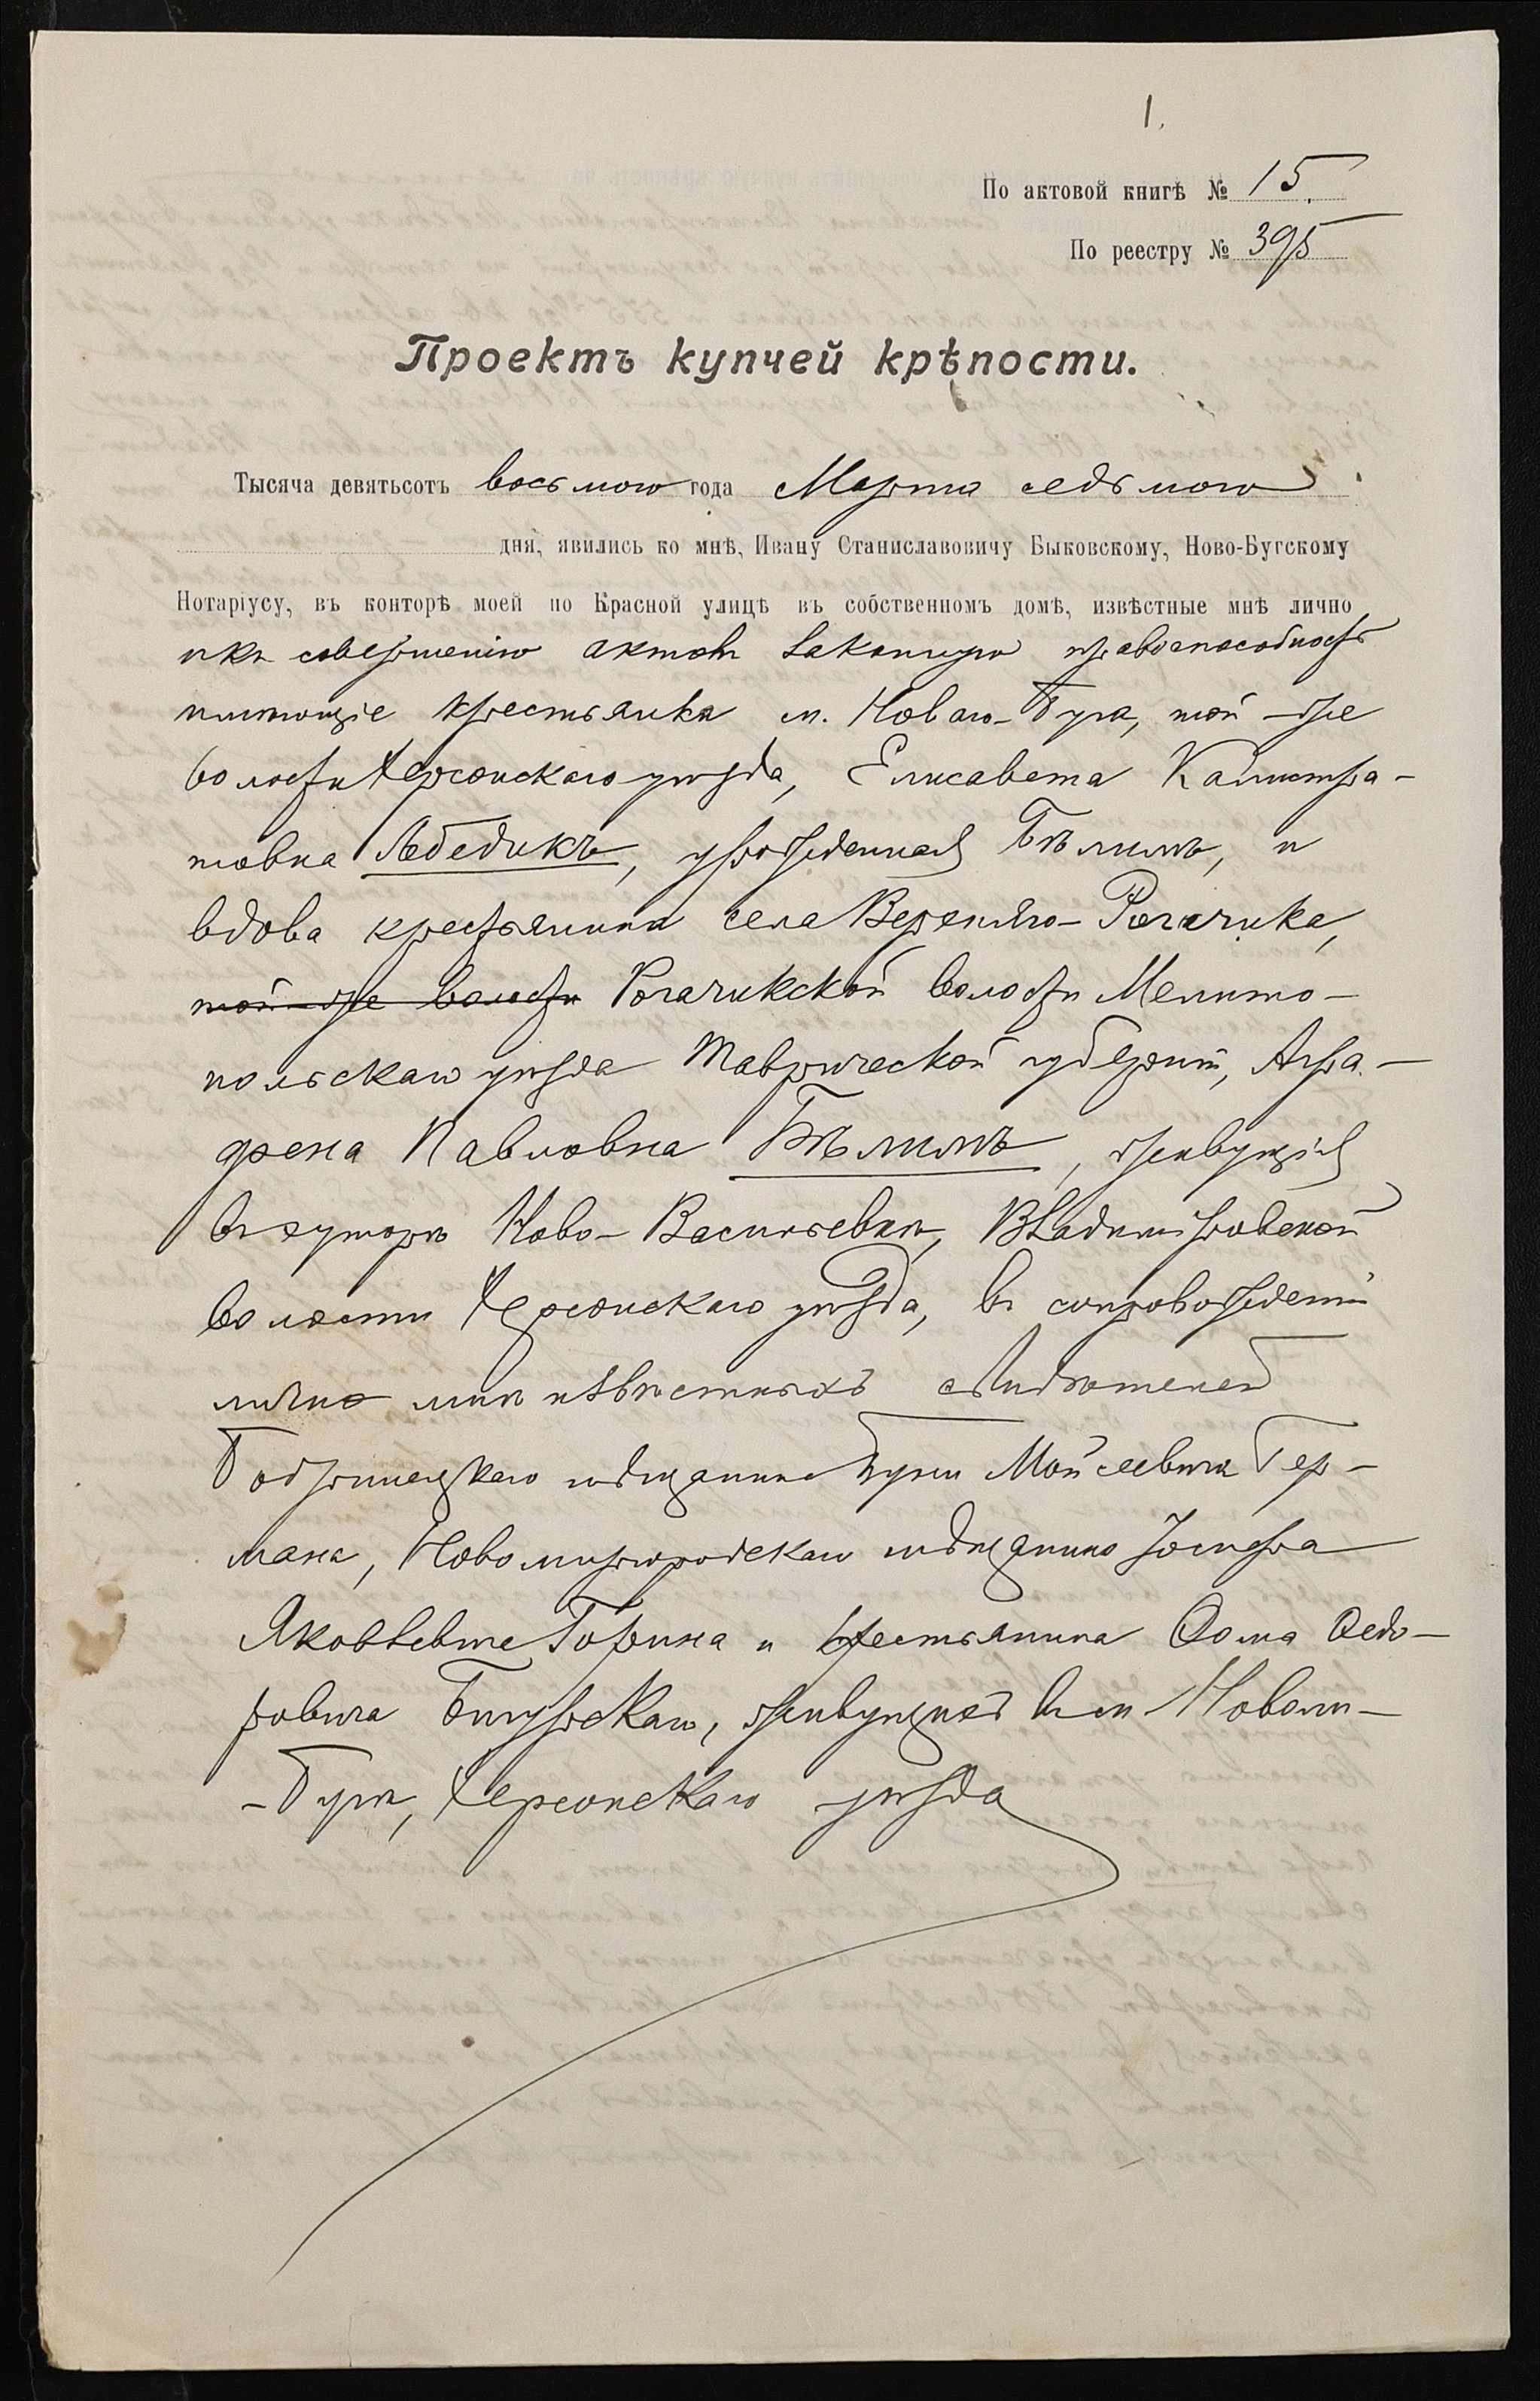 1.
По актовой книгѣ № 15.
По реестру № 395
Проектъ купчей крѣпости.
Тысяча девятьсотъ восьмого года Марта седьмого
дня, явились ко мнѣ, Ивану Станиславовичу Быковскому, Ново-Бугскому
Нотаріусу, въ конторѣ моей по Красной улицѣ въ собственномъ домѣ, извѣстные мнѣ лично
и къ совершенію актовъ законную правоспособность
имѣющіе крестьянка м. Новаго-Буга, той-же
волости Херсонскаго уѣзда, Елисавета Калистра-
товна Лебедикъ, урожденная Бѣлимъ, и
вдова крестьянина села Верхняго-Рогачика,
той-же волости Рогачикской волости Мелито-
польскаго уѣзда Таврической губерніи, Агра-
фена Павловна Бѣлимъ, живущія
въ хуторѣ Ново-Васильевкѣ, Владимировской
волости Херсонскаго уѣзда, въ сопровожденіи
лично мнѣ извѣстныхъ свидѣтелей
Бобринецкаго мѣщанина Мойсеевича Гер-
мана, Новомиргородскаго мѣщанина
Яковлевича Горина и крестьянина Ѳома Ѳедо-
ровича живущихъ въ м. Новомъ-
-Бугѣ, Херсонскаго уѣзда